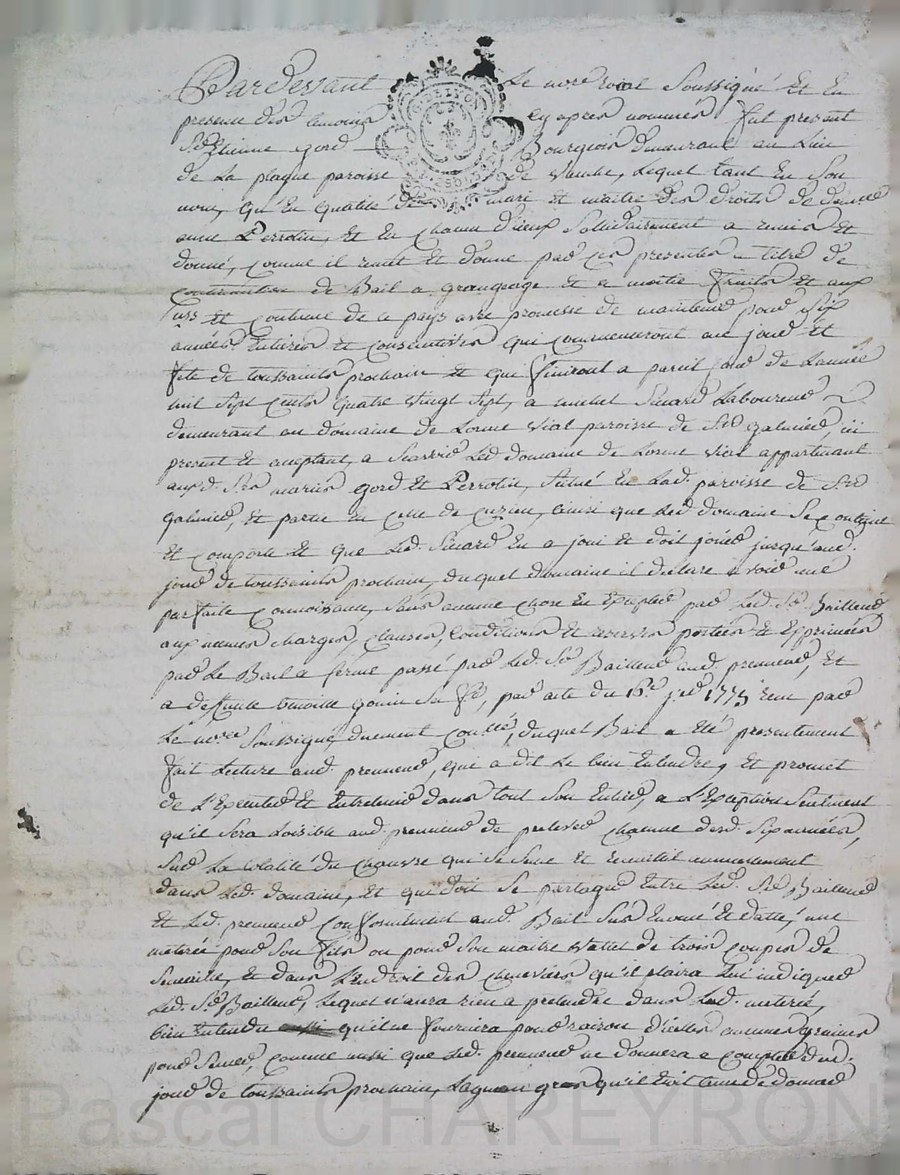 Pardevant Le nore roial Soussigné Et En
presence des temoins cy apres nommés fut present
Sr Etienne gord Bourgeois demeurant au Lieu
de La plagne paroisse de Lequel tant En Son
nom, qu'En qualité de mari et maitre des droits de demlle
anne Perrotin, Et En chacun d'ieux Solidairement a remis Et
donné, comme il remet Et donne par ces presentes a titre de
continuation de Bail a grangeage et a moitié fruits Et aux
us Et coutume de ce pays avec promesse de maintenir pour Six
années Entieres Et Consecutives qui commenceront au jour Et
fete de toussaints prochain Et qui finiront a pareil jour de L'année
mil Sept cents quatre vingt Sept, a michel Sicard Laboureur
demeurant au domaine de Lorme vial paroisse de St galmier ici
present Et acceptant, a Scavoir Led. domaine de Lorme vial appartenant
auxd. Srs mariés gord Et Perrotin, Situé En Lad. paroisse de St
galmier, Et partie En celle de cuzieu, ainsi que Led. domaine Se contient
Et comporte Et que Led. Sicard En a joui Et doit jouir jusqu'aud.
jour de toussaints prochain, duquel domaine il declare avoir une
parfaite connoissance, Sans aucune chose En Excepter par Led. Sr. Bailleur
aux memes charges, clauses, Conditions Et reserves portées Et Exprimées
par Le Bail a ferme passé par Led. Sr Bailleur aud. preneur, Et
a defunte gonin Sa fe, par acte du 16e. 1775 recu par
Le nore Soussigné duement conllé, duquel Bail a Eté presentement
fait Lecture aud. preneur, qui a dit Le bien Entendre, et promet
de L'Executer Et Entretenir dans tout Son Entier, a L'Exception Seulement
qu'il Sera Loisible aud. preneur de prelever chacune desd. Six années,
Sur La totalité du chanvre qui Se Seme Et recueillit annuellement
dans Led. domaine, Et qui doit Se partager Entre Led. Sr Bailleur
Et Led. preneur Conformement aud. Bail Sus Enoncé Et datté, une
meterée pour Son fils ou pour Son maitre valet de trois coupes de
Semaille, Et dans L'Endroit des chenevier qu'il plaira Lui indiquer
Led. Sr. Bailleur, Lequel n'aura rien a pretendre dans Lad. meterée,
bien Entendu qu'il ne fournira pour raison d'icelle aucunes graines
pour Semer, comme aussi que Led. preneur ne donnera a compter dud.
jour de toussaints prochain, qu'il Etoit tenu de donner
Pascal CHAREYRON